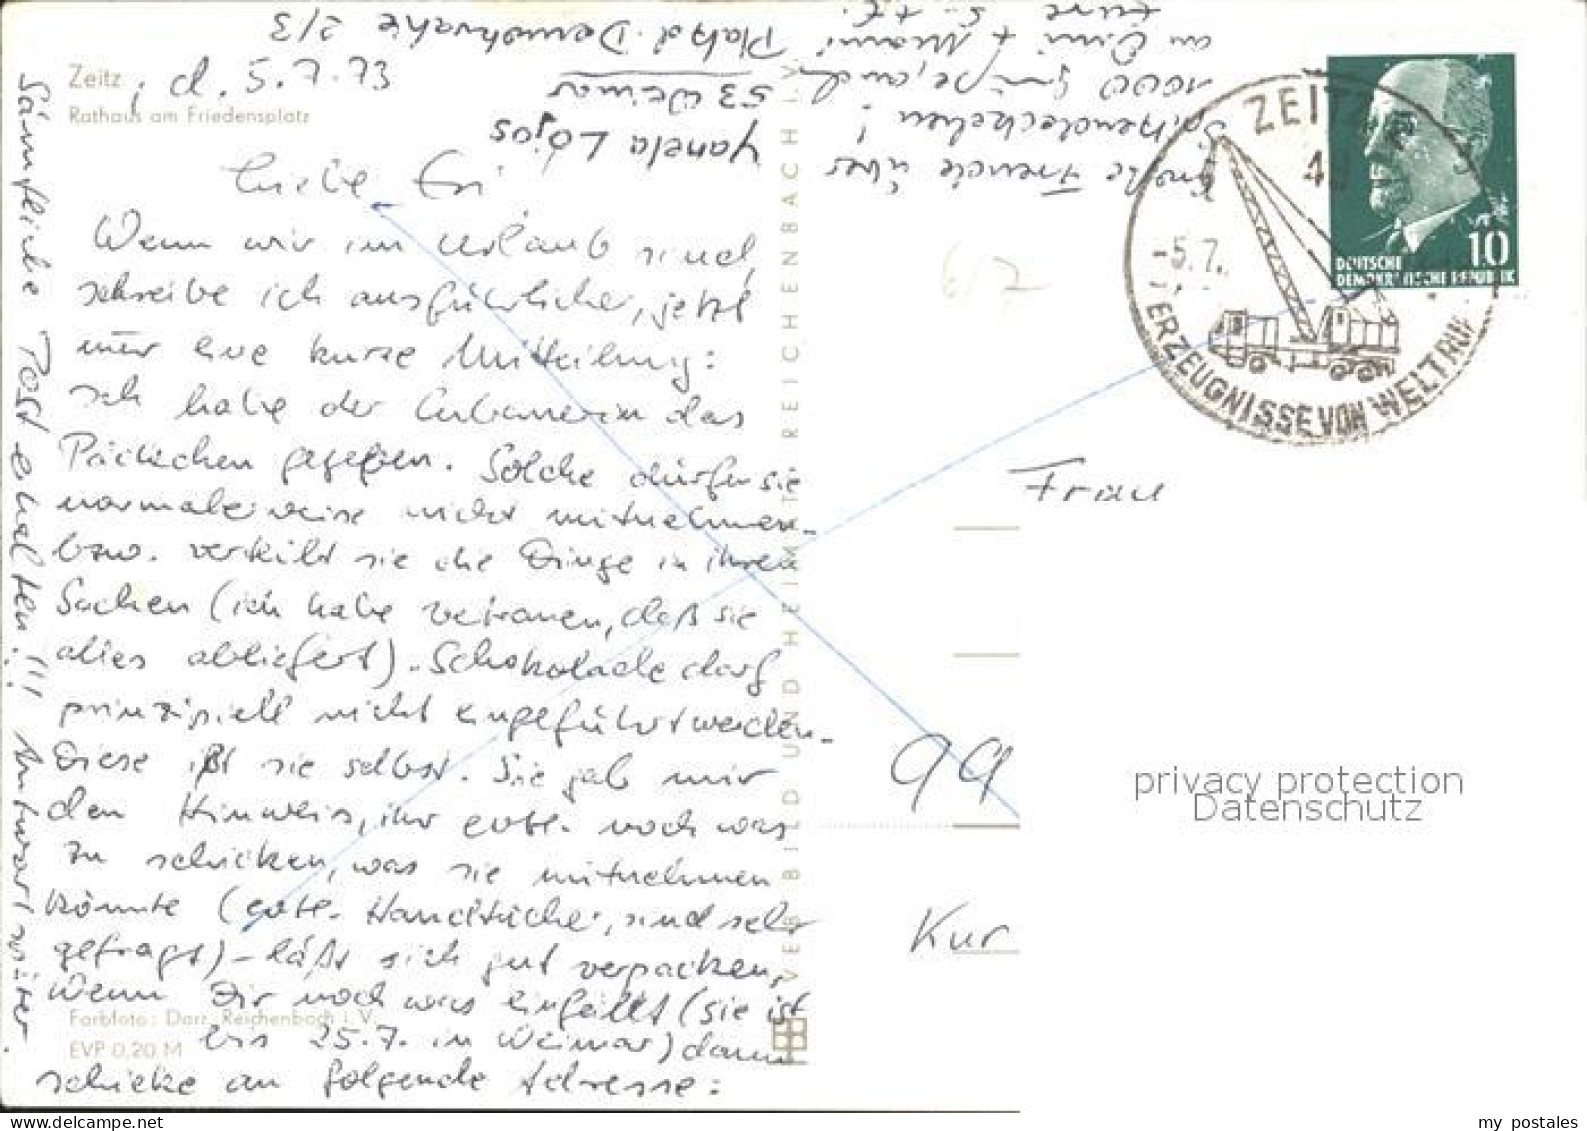 Zeitz, d. 5.7.73
Rathaus am Friedensplatz
Liebe Evi
Wenn wir im Urlaub sind,
schreibe ich ausführlicher, jetzt
nur eine kurze Mitteilung:
Ich habe der Cubanerin das
Päckchen gegeben. Solche dürfen sie
normalerweise nicht mitnehmen
bzw. verteilt sie die Dinge in ihren
Sachen (ich habe Vertrauen, daß sie
alles abliefert). Schokolade darf
prinzipiell nicht eingeführt werden.
Diese ißt sie selbst. Sie gab mir
den Hinweis, ihr evtl. noch was
zu schicken, was sie mitnehmen
könnte (evtl. Handtücher, sind sehr
gefragt) – läßt sich gut verpacken,
Wenn Dir noch was einfällt (sie ist
bis 25.7. in Weimar) dann
schicke an folgende Adresse:
Farbfoto: Darr, Reichenbach i. V.
EVP 0,20 M
Sämtliche Post erhalten!!! Antwort später.
Yanela Lojos
53 Weimar
Platz d. Demokratie 2/3
Freude über
Spitzendeckchen!
1000 Grüße, auch
an Omi + Mami
Eure
VEB BILD UND HEIMAT REICHENBACH I. V.
6/7
ZEITZ
-5.7.
ERZEUGNISSE VON WELTRUF
10
DEUTSCHE
DEMOKRATISCHE REPUBLIK
Frau
99
Kur
privacy protection
Datenschutz
my postales